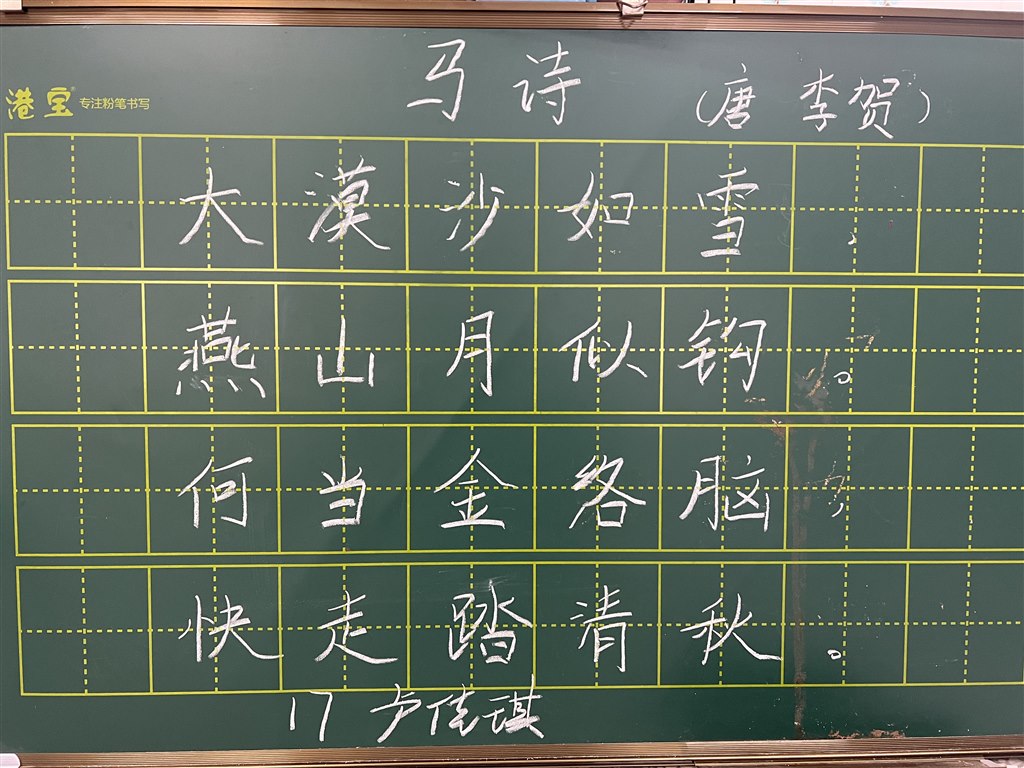 马诗
(唐 李贺)
港宝 专注粉笔书写
大漠沙如雪,
燕山月似钩。
何当金络脑,
快走踏清秋。
17 卢佳琪